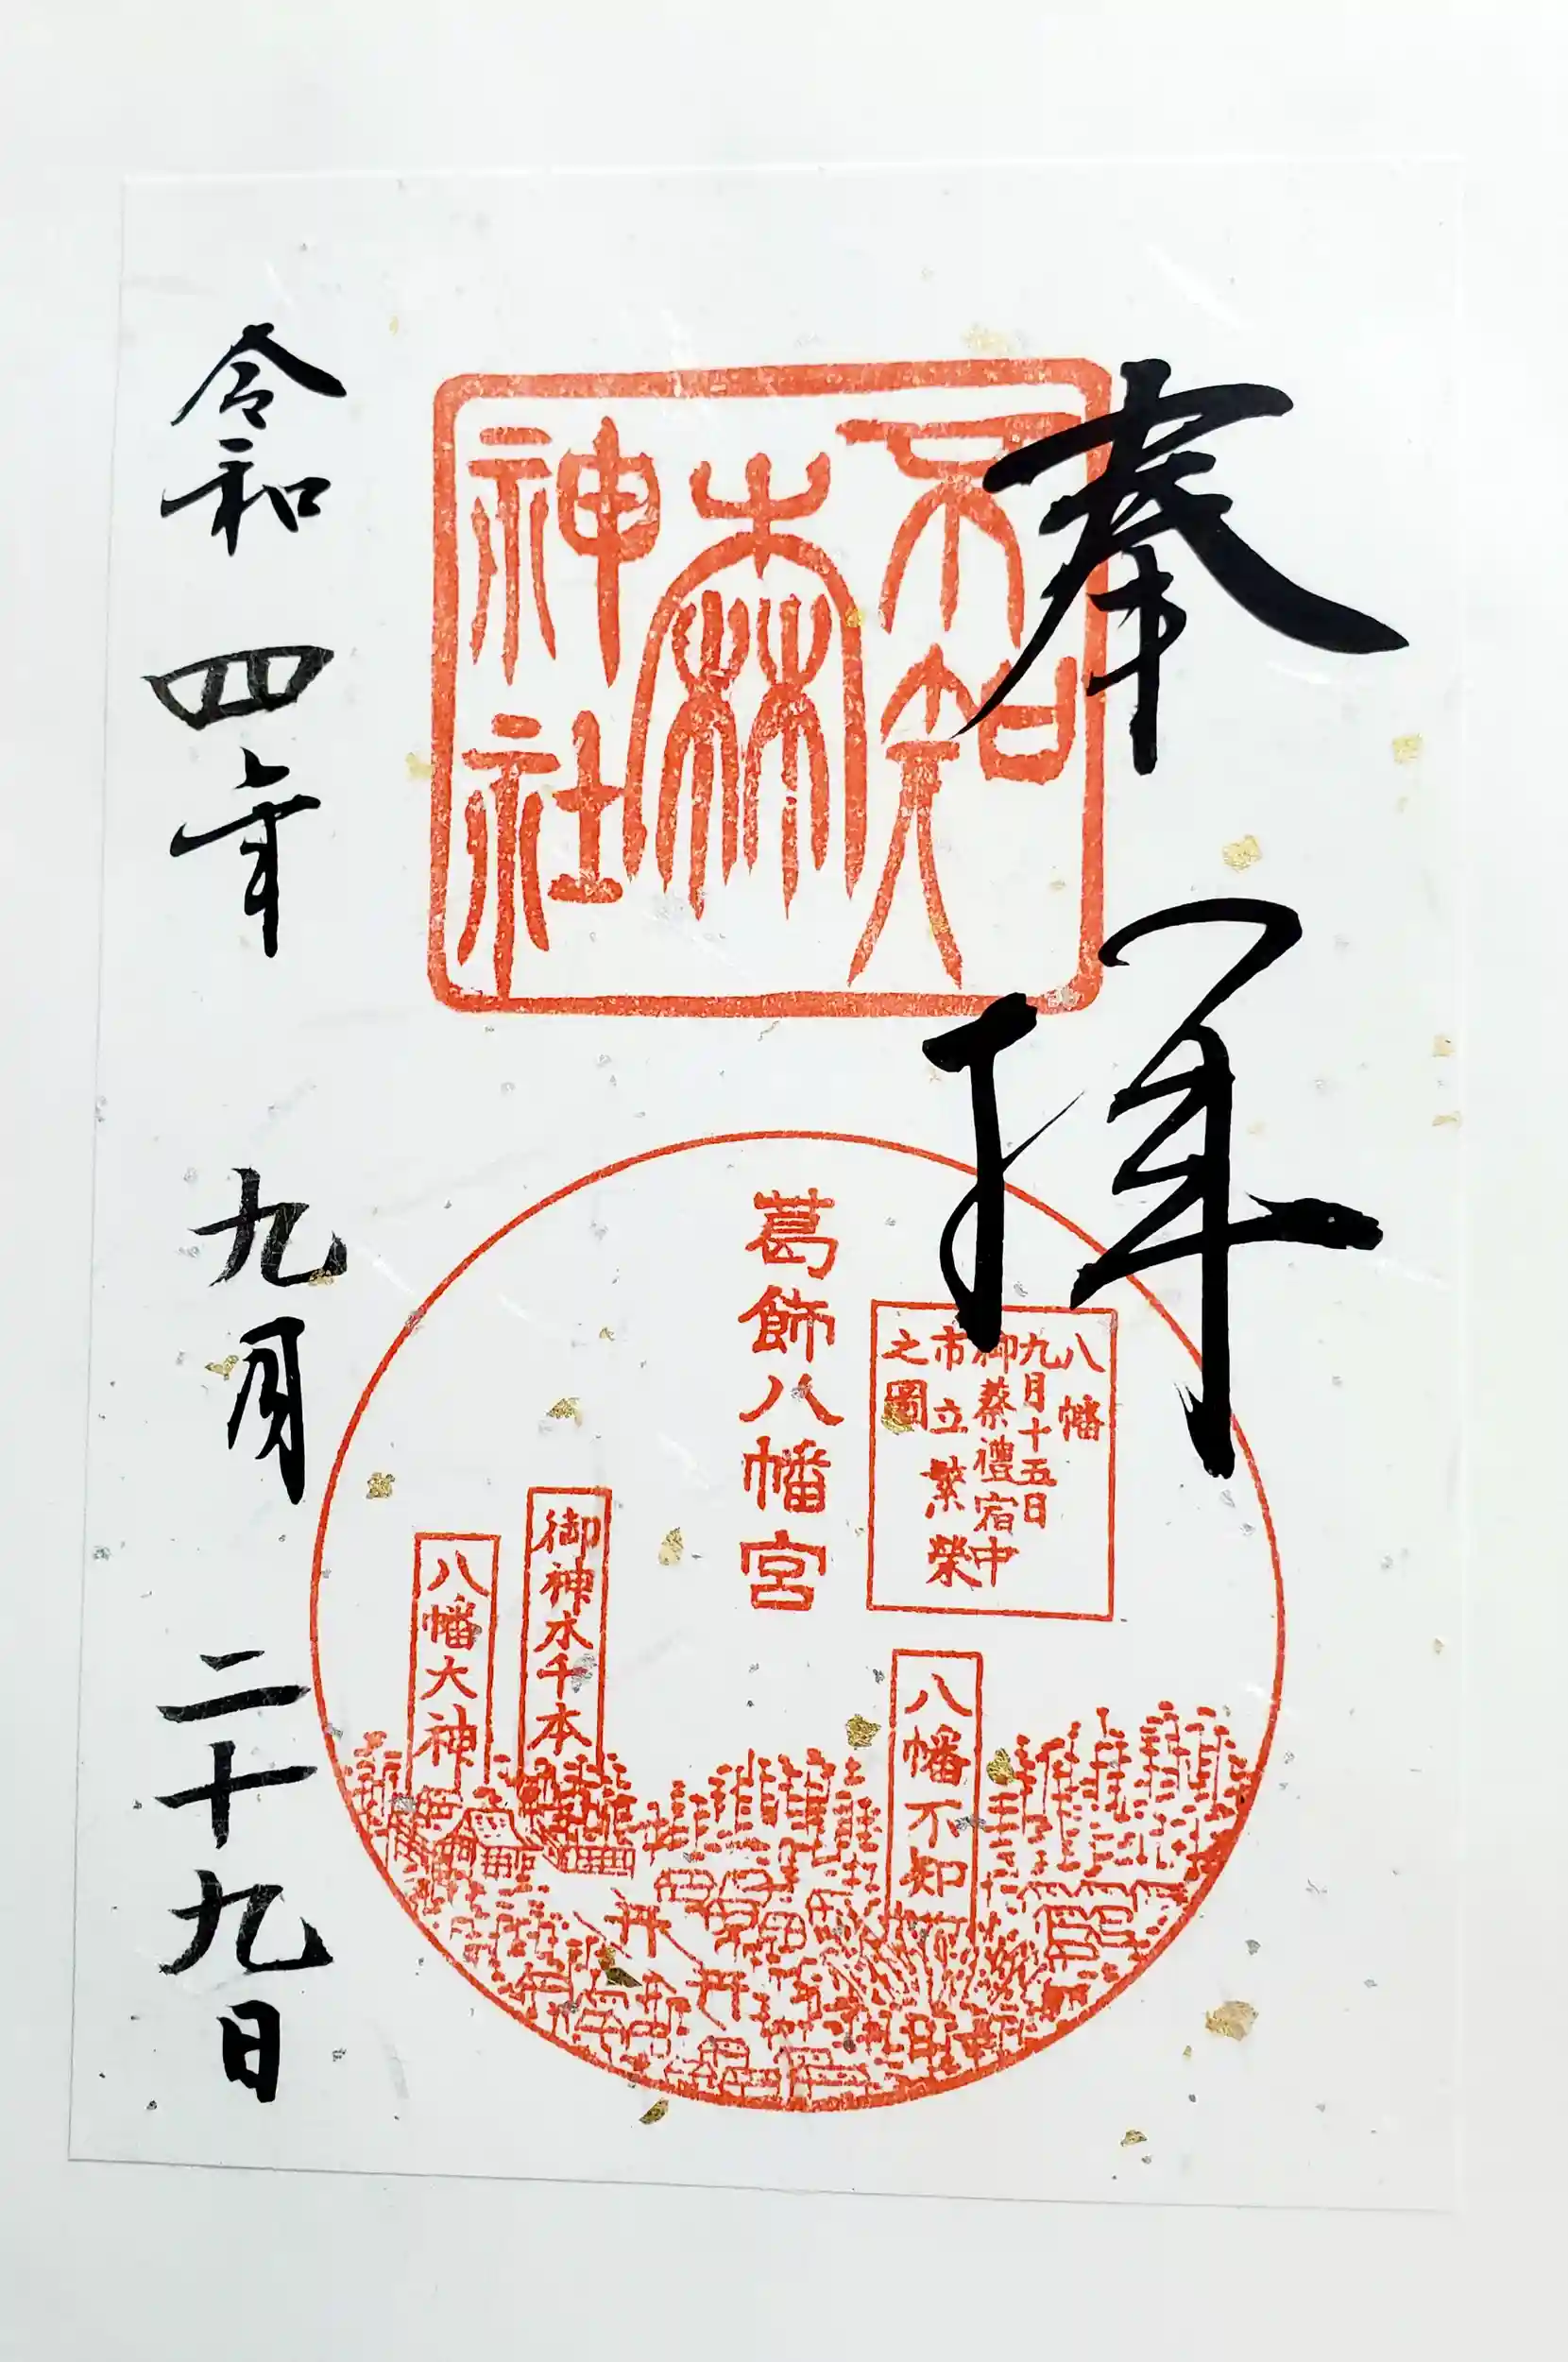 奉拝
不知
森
神社
葛飾八幡宮
八幡
九月十五日
御祭禮宿中
市立繁榮
之圖
八幡不知
御神水千本
八幡大神
令和四年 九月 二十九日